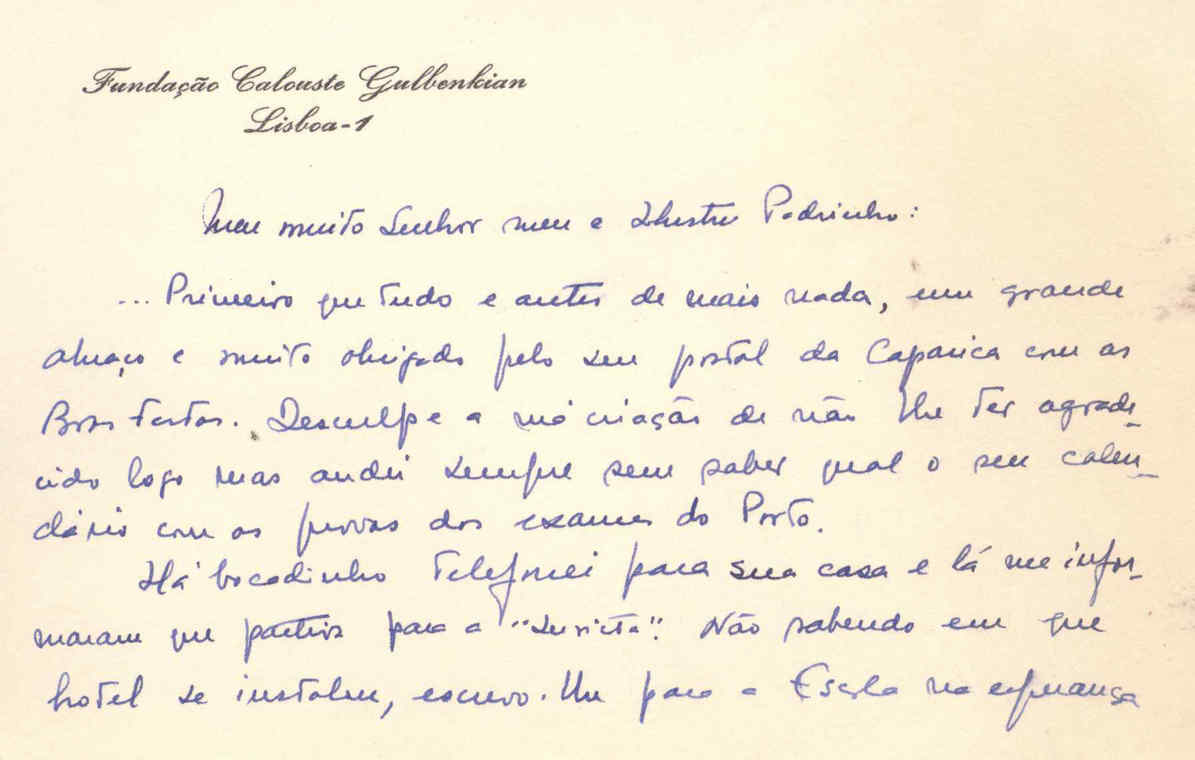 Fundação Calouste Gulbenkian
Lisboa-1
Meu muito Senhor meu e Ilustre Padrinho:
... Primeiro que tudo e antes de mais nada, um grande
abraço e muito obrigado pelo seu postal da Caparica com as
Boas Festas. Desculpe a má criação de não lhe ter agrade-
cido logo mas andei sempre sem saber qual o seu calen-
dário com as provas dos exames do Porto.
Há bocadinho telefonei para sua casa e lá me infor-
maram que partira para a "Invicta". Não sabendo em que
hotel se instalou, escrevo-lhe para a Escola na esperança